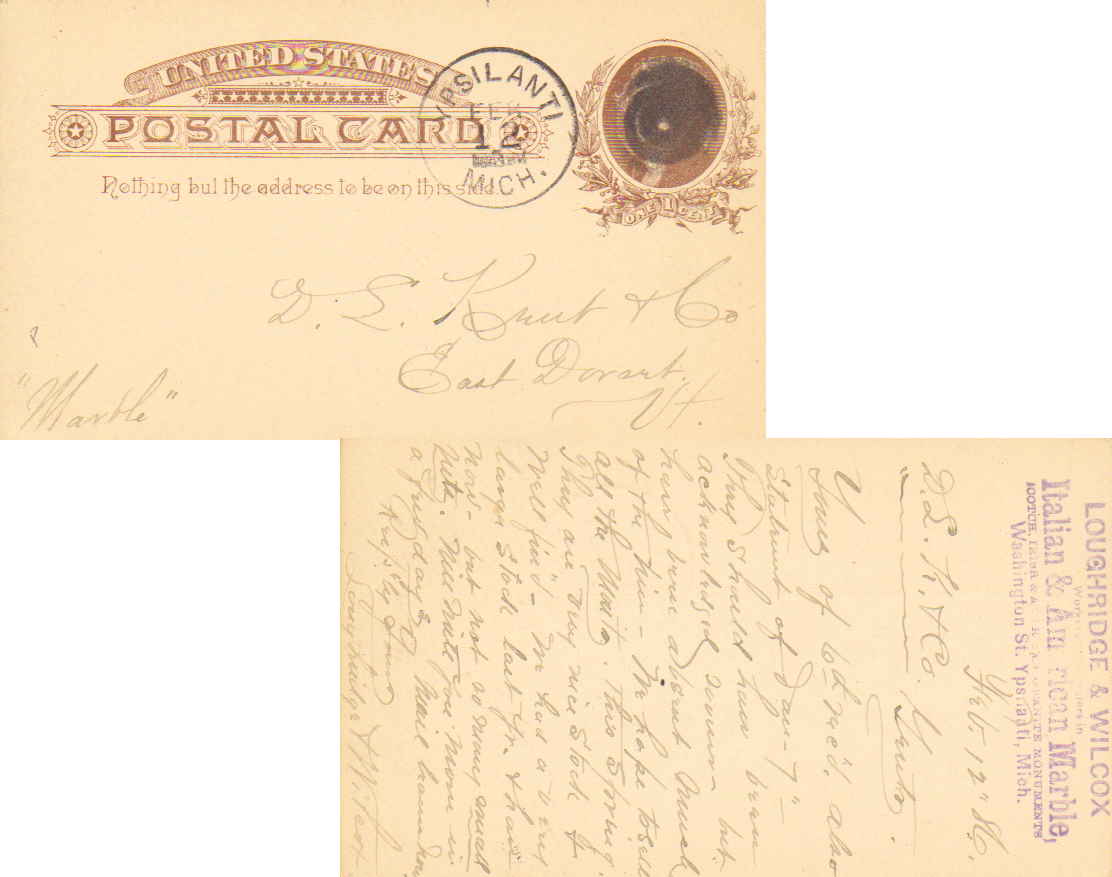 UNITED STATES
POSTAL CARD
YPSILANTI
FEB
12
MICH.
Nothing but the address to be on this side.
ONE 1 CENT
D. L. Kent & Co
East Dorset.
Vt.
"Marble"
LOUGHRIDGE & WILCOX
Workers in
Italian & Am rican Marble,
SCOTCH, IRISH & GRANITE MONUMENTS
Washington St. Ypsilanti, Mich.
Feb. 12" 86.
D. L. K. & Co.
Gents,
Yours of 6th rec'd, also
Statement of Jan. 7"
They should have been
acknowledged sooner but
have been absent much
of the time - We hope to sell
all the Marble this Spring.
They are very nice Stock &
Well fin'd - We had a very
large Stock last yr. & have
now - but not so many small
Will write you more in
a few days &
Resp'y Yours
Loughridge & Wilcox